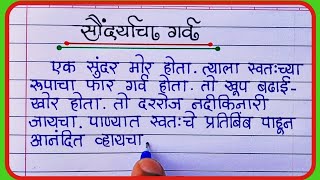 सौंदर्याचा गर्व
एक सुंदर मोर होता. त्याला स्वतःच्या
रूपाचा फार गर्व होता. तो खूप बढाई-
खोर होता. तो दररोज नदीकिनारी
जायचा. पाण्यात स्वतःचे प्रतिबिंब पाहून
आनंदित व्हायचा